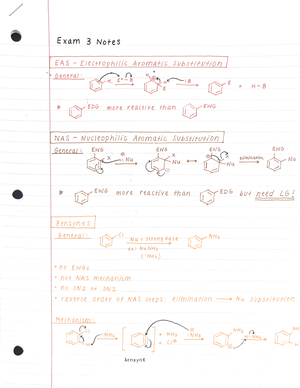 Exam 3 Notes
EAS - Electrophilic Aromatic Substitution
General:
H E⁺-B H :B E + H-B
EDG more reactive than EWG
NAS - Nucleophilic Aromatic Substitution
General: EWG EWG EWG EWG
X :Nu X Nu Nu elimination Nu
EWG more reactive than EDG but need LG!
Benzynes
General: Cl Nu = strong base NH₂
ex: NaNH₂
(⁻NH₂)
• no EWGs
• not NAS mechanism
• no SN2 or SN1
• reverse order of NAS steps: elimination → Nu substitution
Mechanism:
Cl :NH₂ + NH₃ :NH₂ NH₂ H-NH₂ NH₂
H + Cl⊖
benzyne